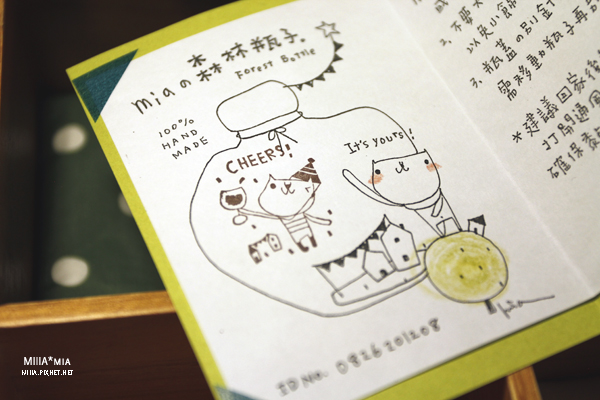 miaの森林瓶子.
Forest Bottle
100%
HAND
MADE
CHEERS!
It's yours!
ID No. 0826201208
mia
2. 不要
以免小飾
3. 瓶蓋の別金
需移動瓶子再
*建議回家後
打開通風
確保
MIIIA*MIA
MIIIA.PIXNET.NET